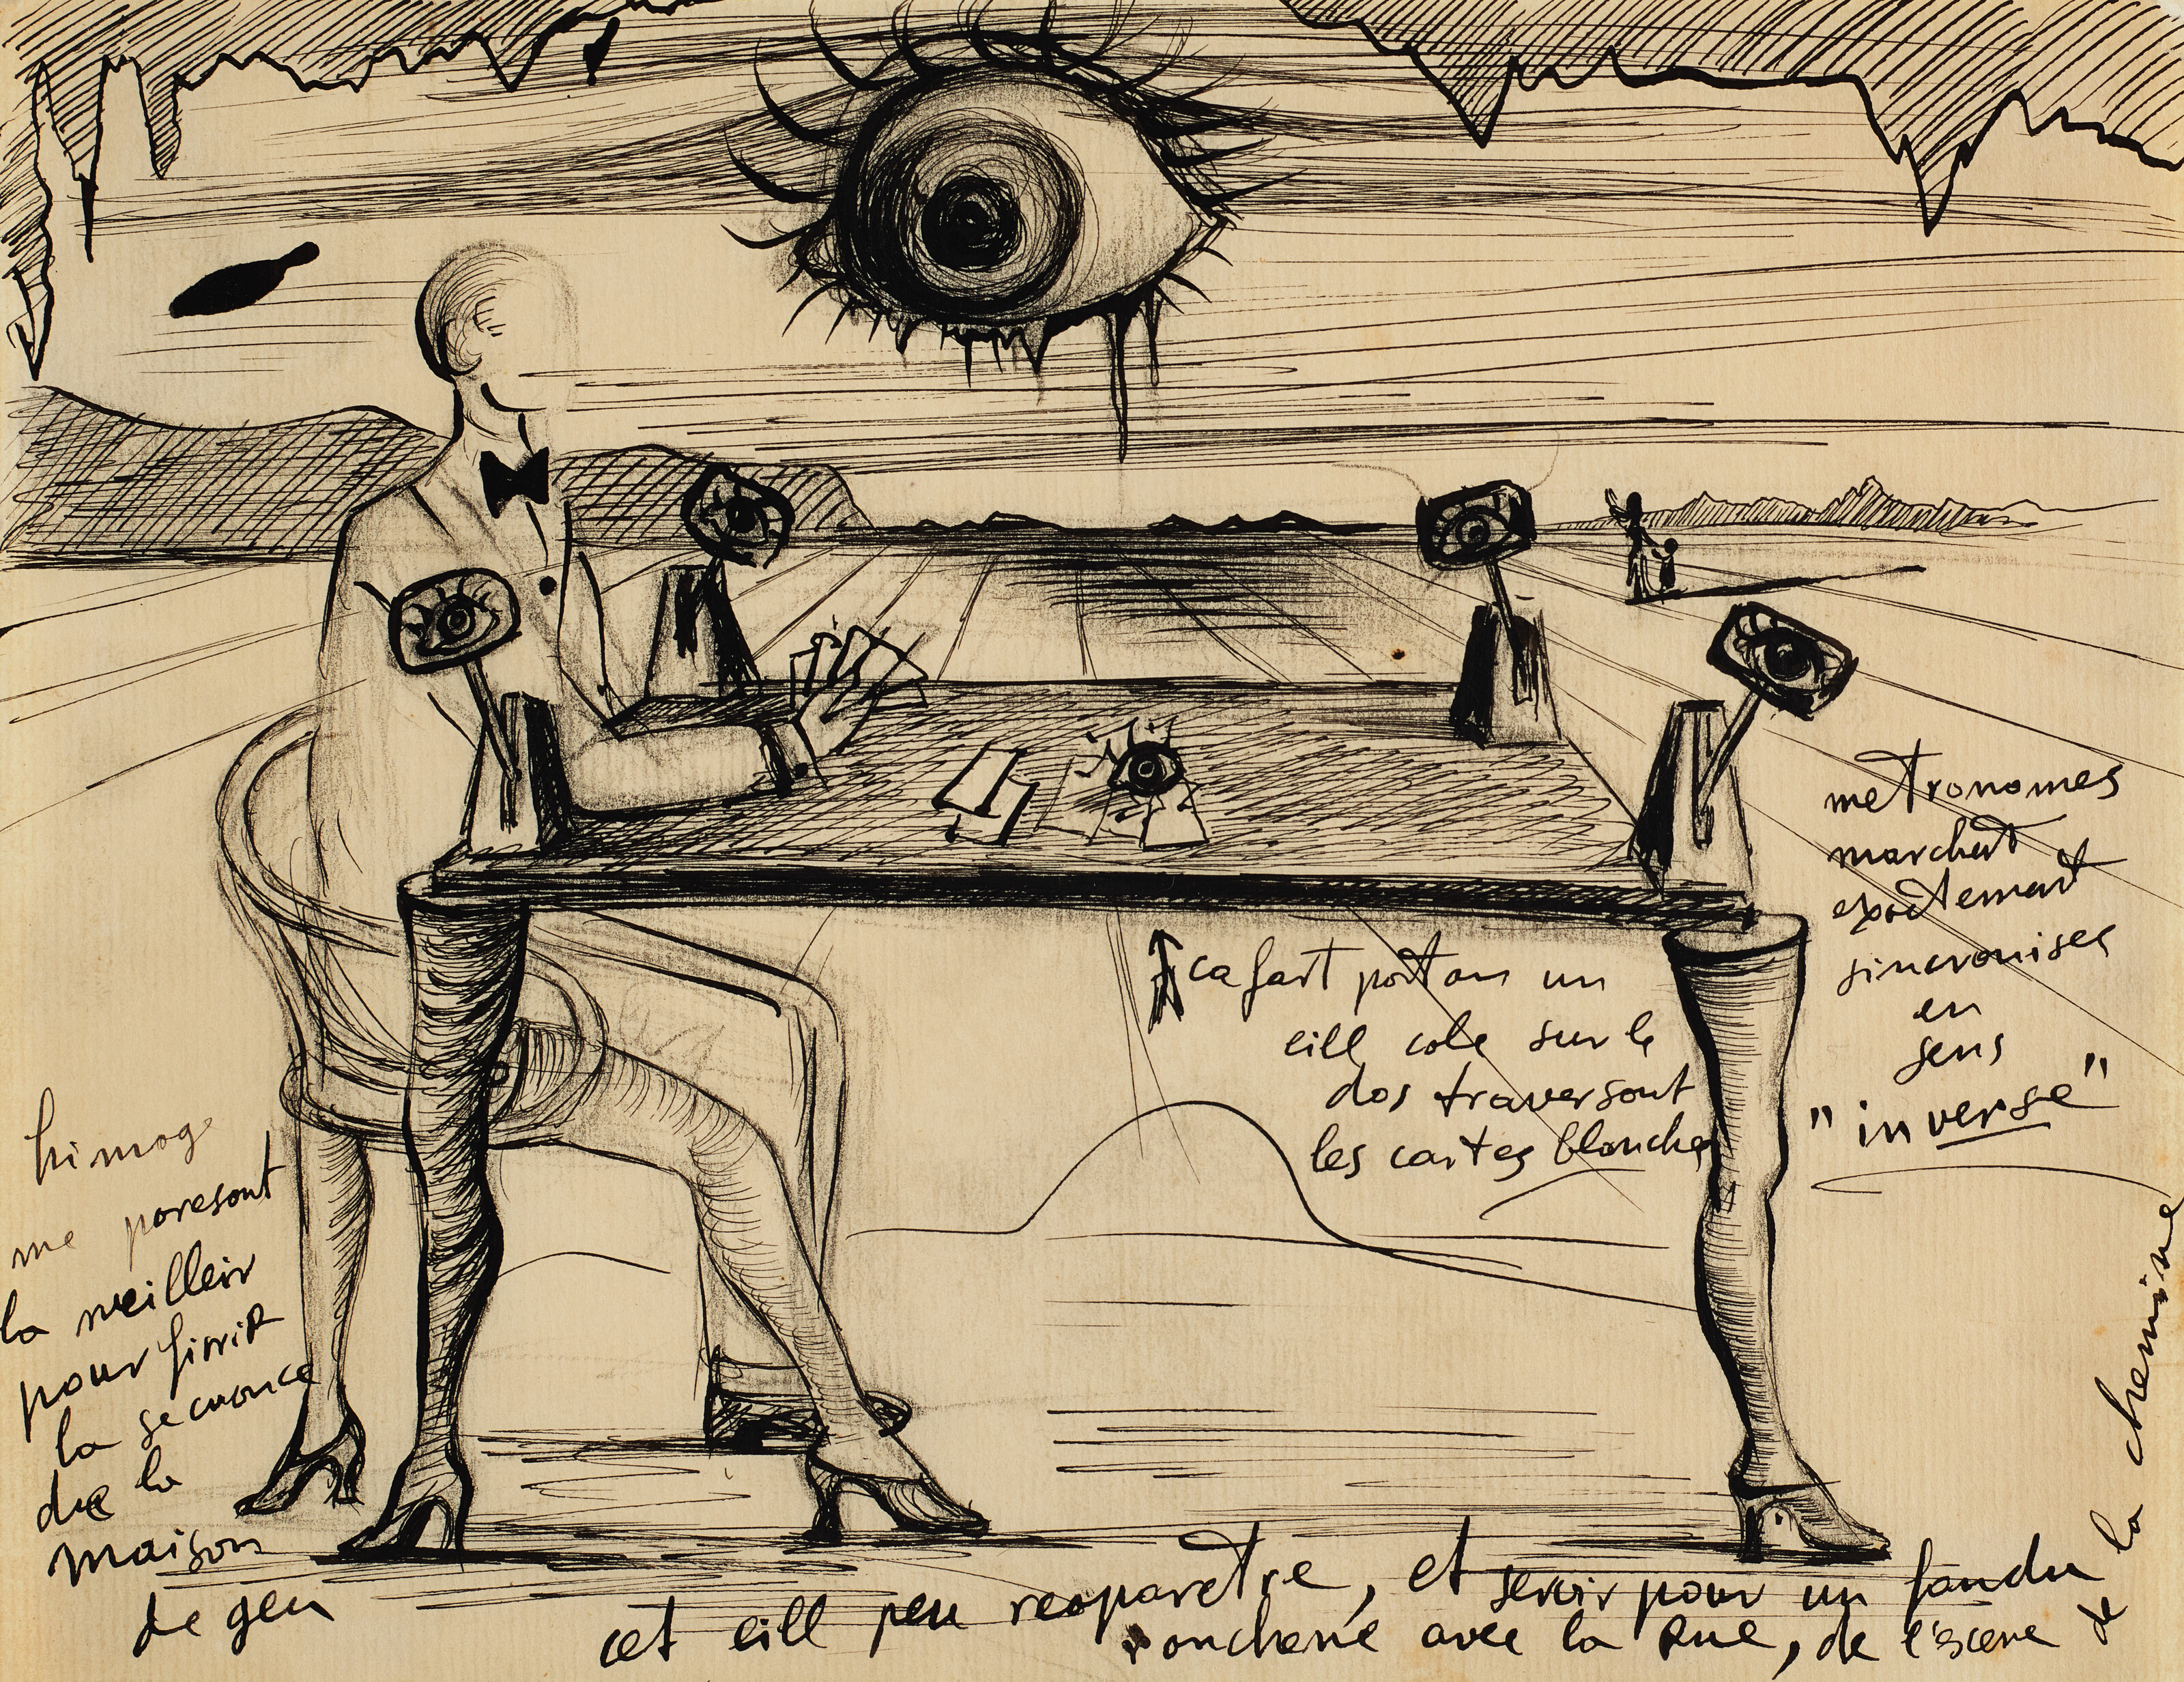 metronomes
marchent
exactemant
sincronises
en
sens
"inverse"
cafart portan un
eill cole sur le
dos traversant
les cartes blanches
himage
me paresant
la meilleir
pour finir
la secuance
de la
maison
de geu
cet eill peu reaparetre, et servir pour un fondu
anchené avec la Rue, de l'escene
de la chemine